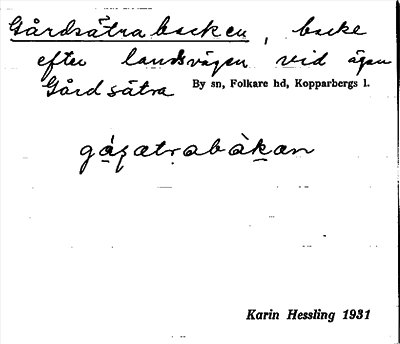 Gårdsätrabacken, backe
efter landsvägen vid ägan
Gårdsätra By sn, Folkare hd, Kopparbergs l.
gásætrabàkan
Karin Hessling 1931